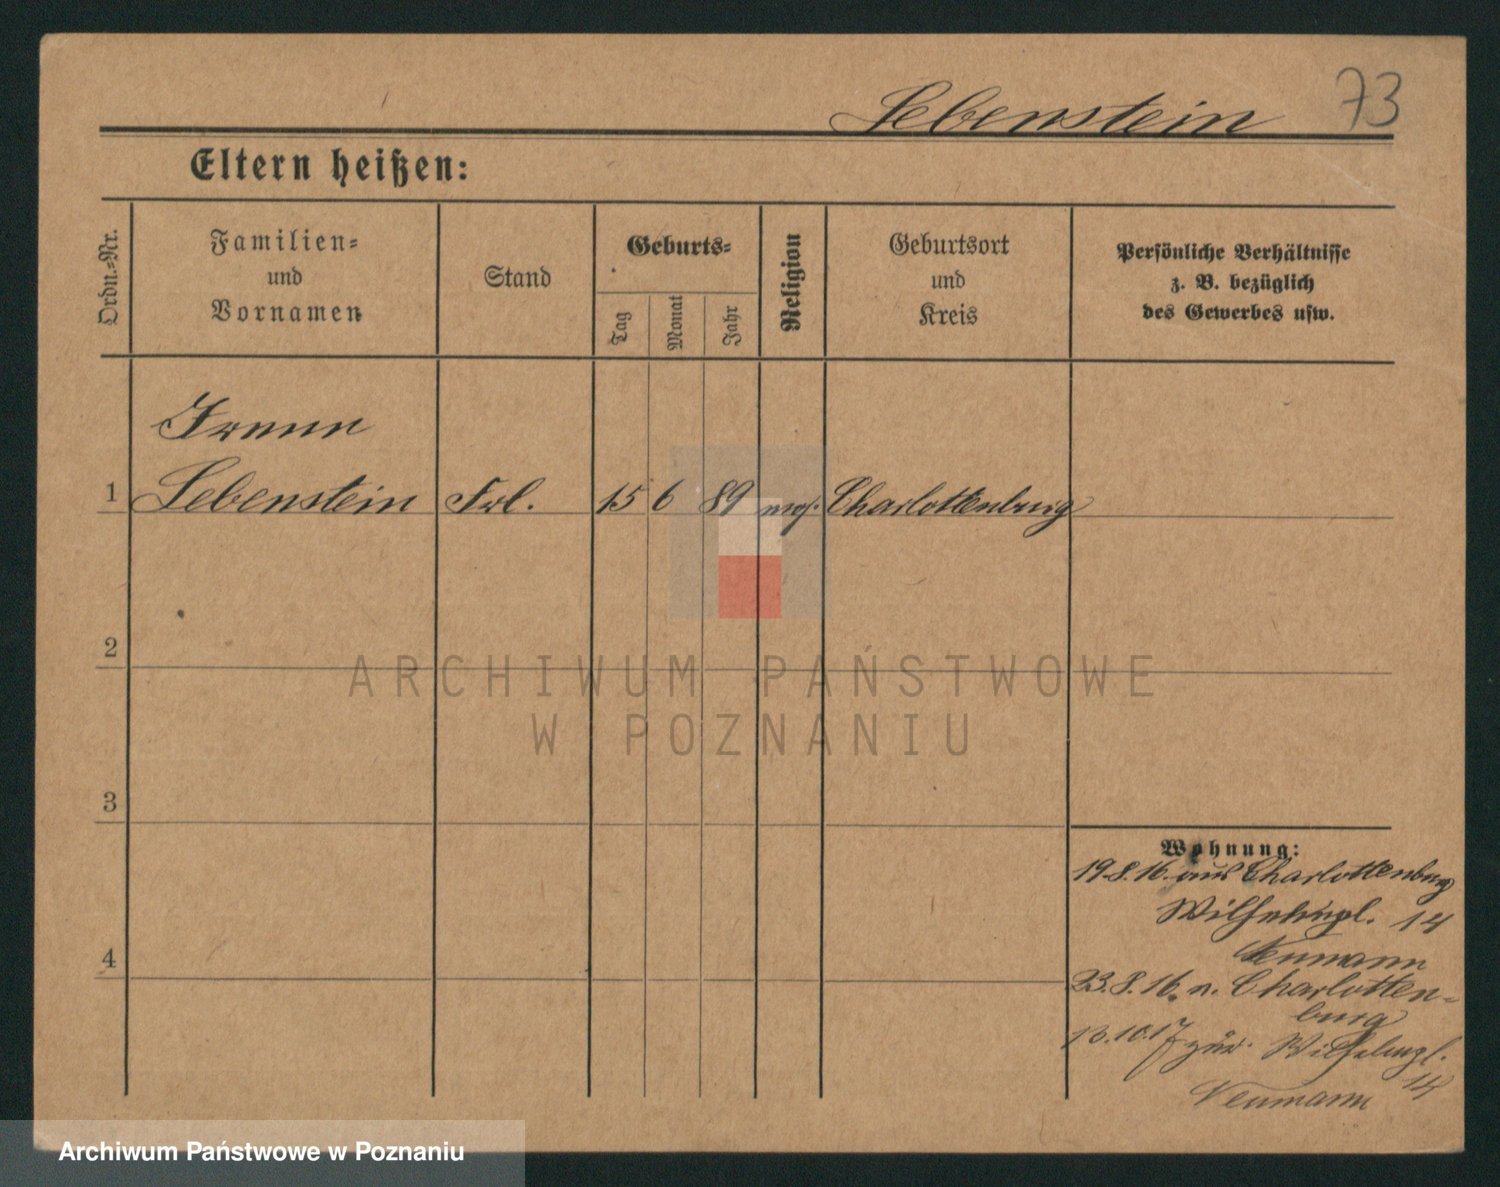 73
Lebenstein
Eltern heißen:
Ordn.-Nr.
Familien-
und
Vornamen
Stand
Geburts-
Tag
Monat
Jahr
Religion
Geburtsort
und
Kreis
Persönliche Verhältnisse
z. B. bezüglich
des Gewerbes usw.
1
Lebenstein Frl. 15 6 89 mos. Charlottenburg
2
3
4
Wohnung:
19.8.16. aus Charlottenburg
Wilhelmpl. 14
Neumann
23.8.16. n. Charlotten-
burg
13.10.17 zur. Wilhelmpl.
14
Neumann
ARCHIWUM PAŃSTWOWE
W POZNANIU
Archiwum Państwowe w Poznaniu